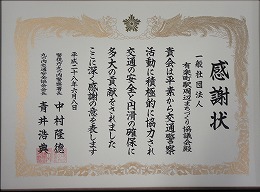 感謝状
一般社団法人
有楽町駅周辺まちづくり協議会殿
貴会は平素から交通警察
活動に積極的に協力され
交通の安全と円滑の確保に
多大の貢献をされました
ここに深く感謝の意を表します
平成二十八年六月八日
警視庁丸の内警察署長
中村隆徳
丸の内交通安全協会会長
青井浩